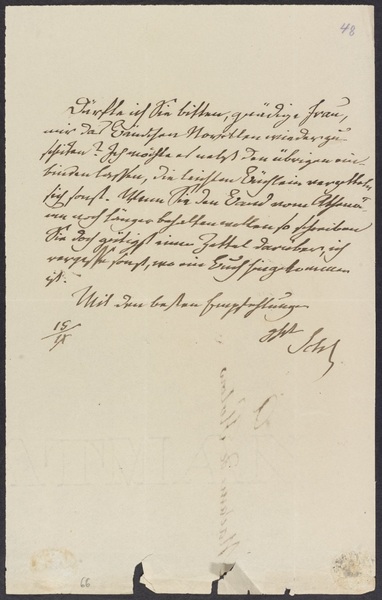 48
Dürfte ich Sie bitten, gnädige Frau,
mir das Bändchen Novellen wieder zu-
schicken? Ich möchte es nebst den übrigen ein-
binden lassen, die leichten Büchlein verzetteln
sich sonst. Wenn Sie den Band vom Athenä-
um noch länger behalten wollen, so schreiben
Sie doch gütigst einen Zettel darüber, ich
vergesse sonst, wo ein Buch hingekommen
ist.
Mit den besten Empfehlungen
Ihr
15
66